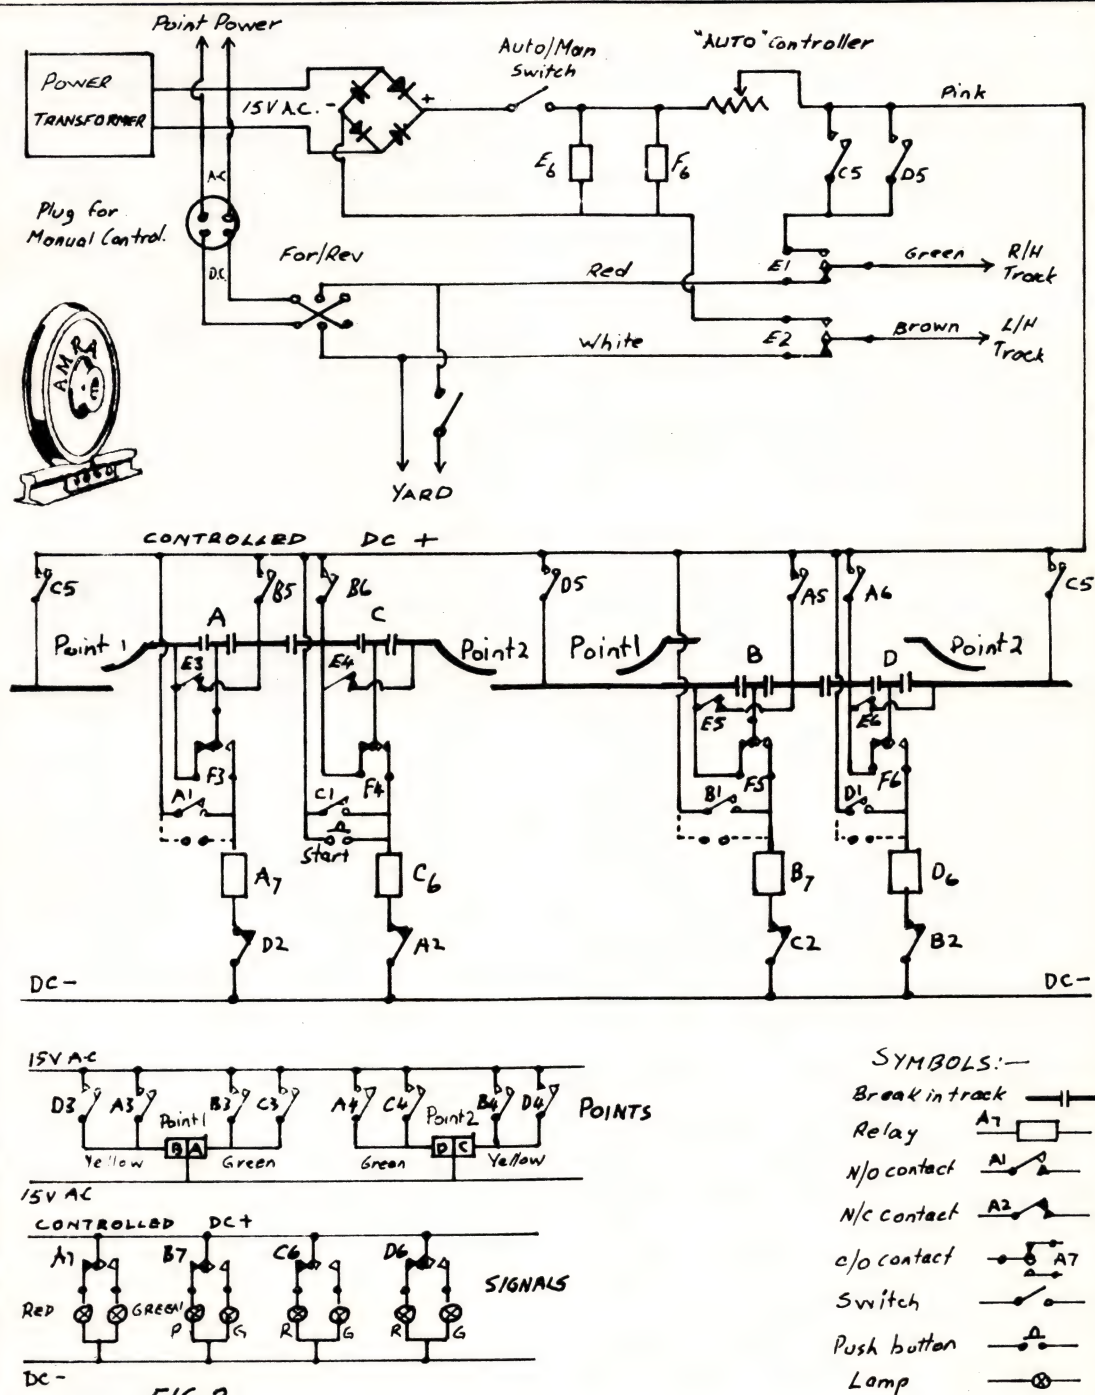 Point Power
POWER
TRANSFORMER
15V A.C. - +
Auto/Man
Switch
"AUTO" Controller
Pink
E6 F6 C5 D5
A.C
Plug for
Manual Control.
D.C.
For/Rev
Red
E1
Green
R/H
Track
White
E2
Brown
L/H
Track
AMRA
YARD
CONTROLLED DC +
C5 B5 B6 D5 A5 A6 C5
A C
Point 1 Point2 Point1 B D Point2
E3 E4 E5 E6
F3 F4 F5 F6
A1 C1 B1 D1
Start
A7 C6 B7 D6
D2 A2 C2 B2
DC - DC -
15V A-C
D3 A3 B3 C3 A4 C4 B4 D4 POINTS
Point1 Point2
B A D C
Yellow Green Green Yellow
15V AC
CONTROLLED DC+
A7 B7 C6 D6 SIGNALS
RED GREEN R G R G R G
DC -
FIG 2
SYMBOLS:-
Break in track
Relay A7
N/O contact A1
N/C contact A2
c/o contact A7
Switch
Push button
Lamp